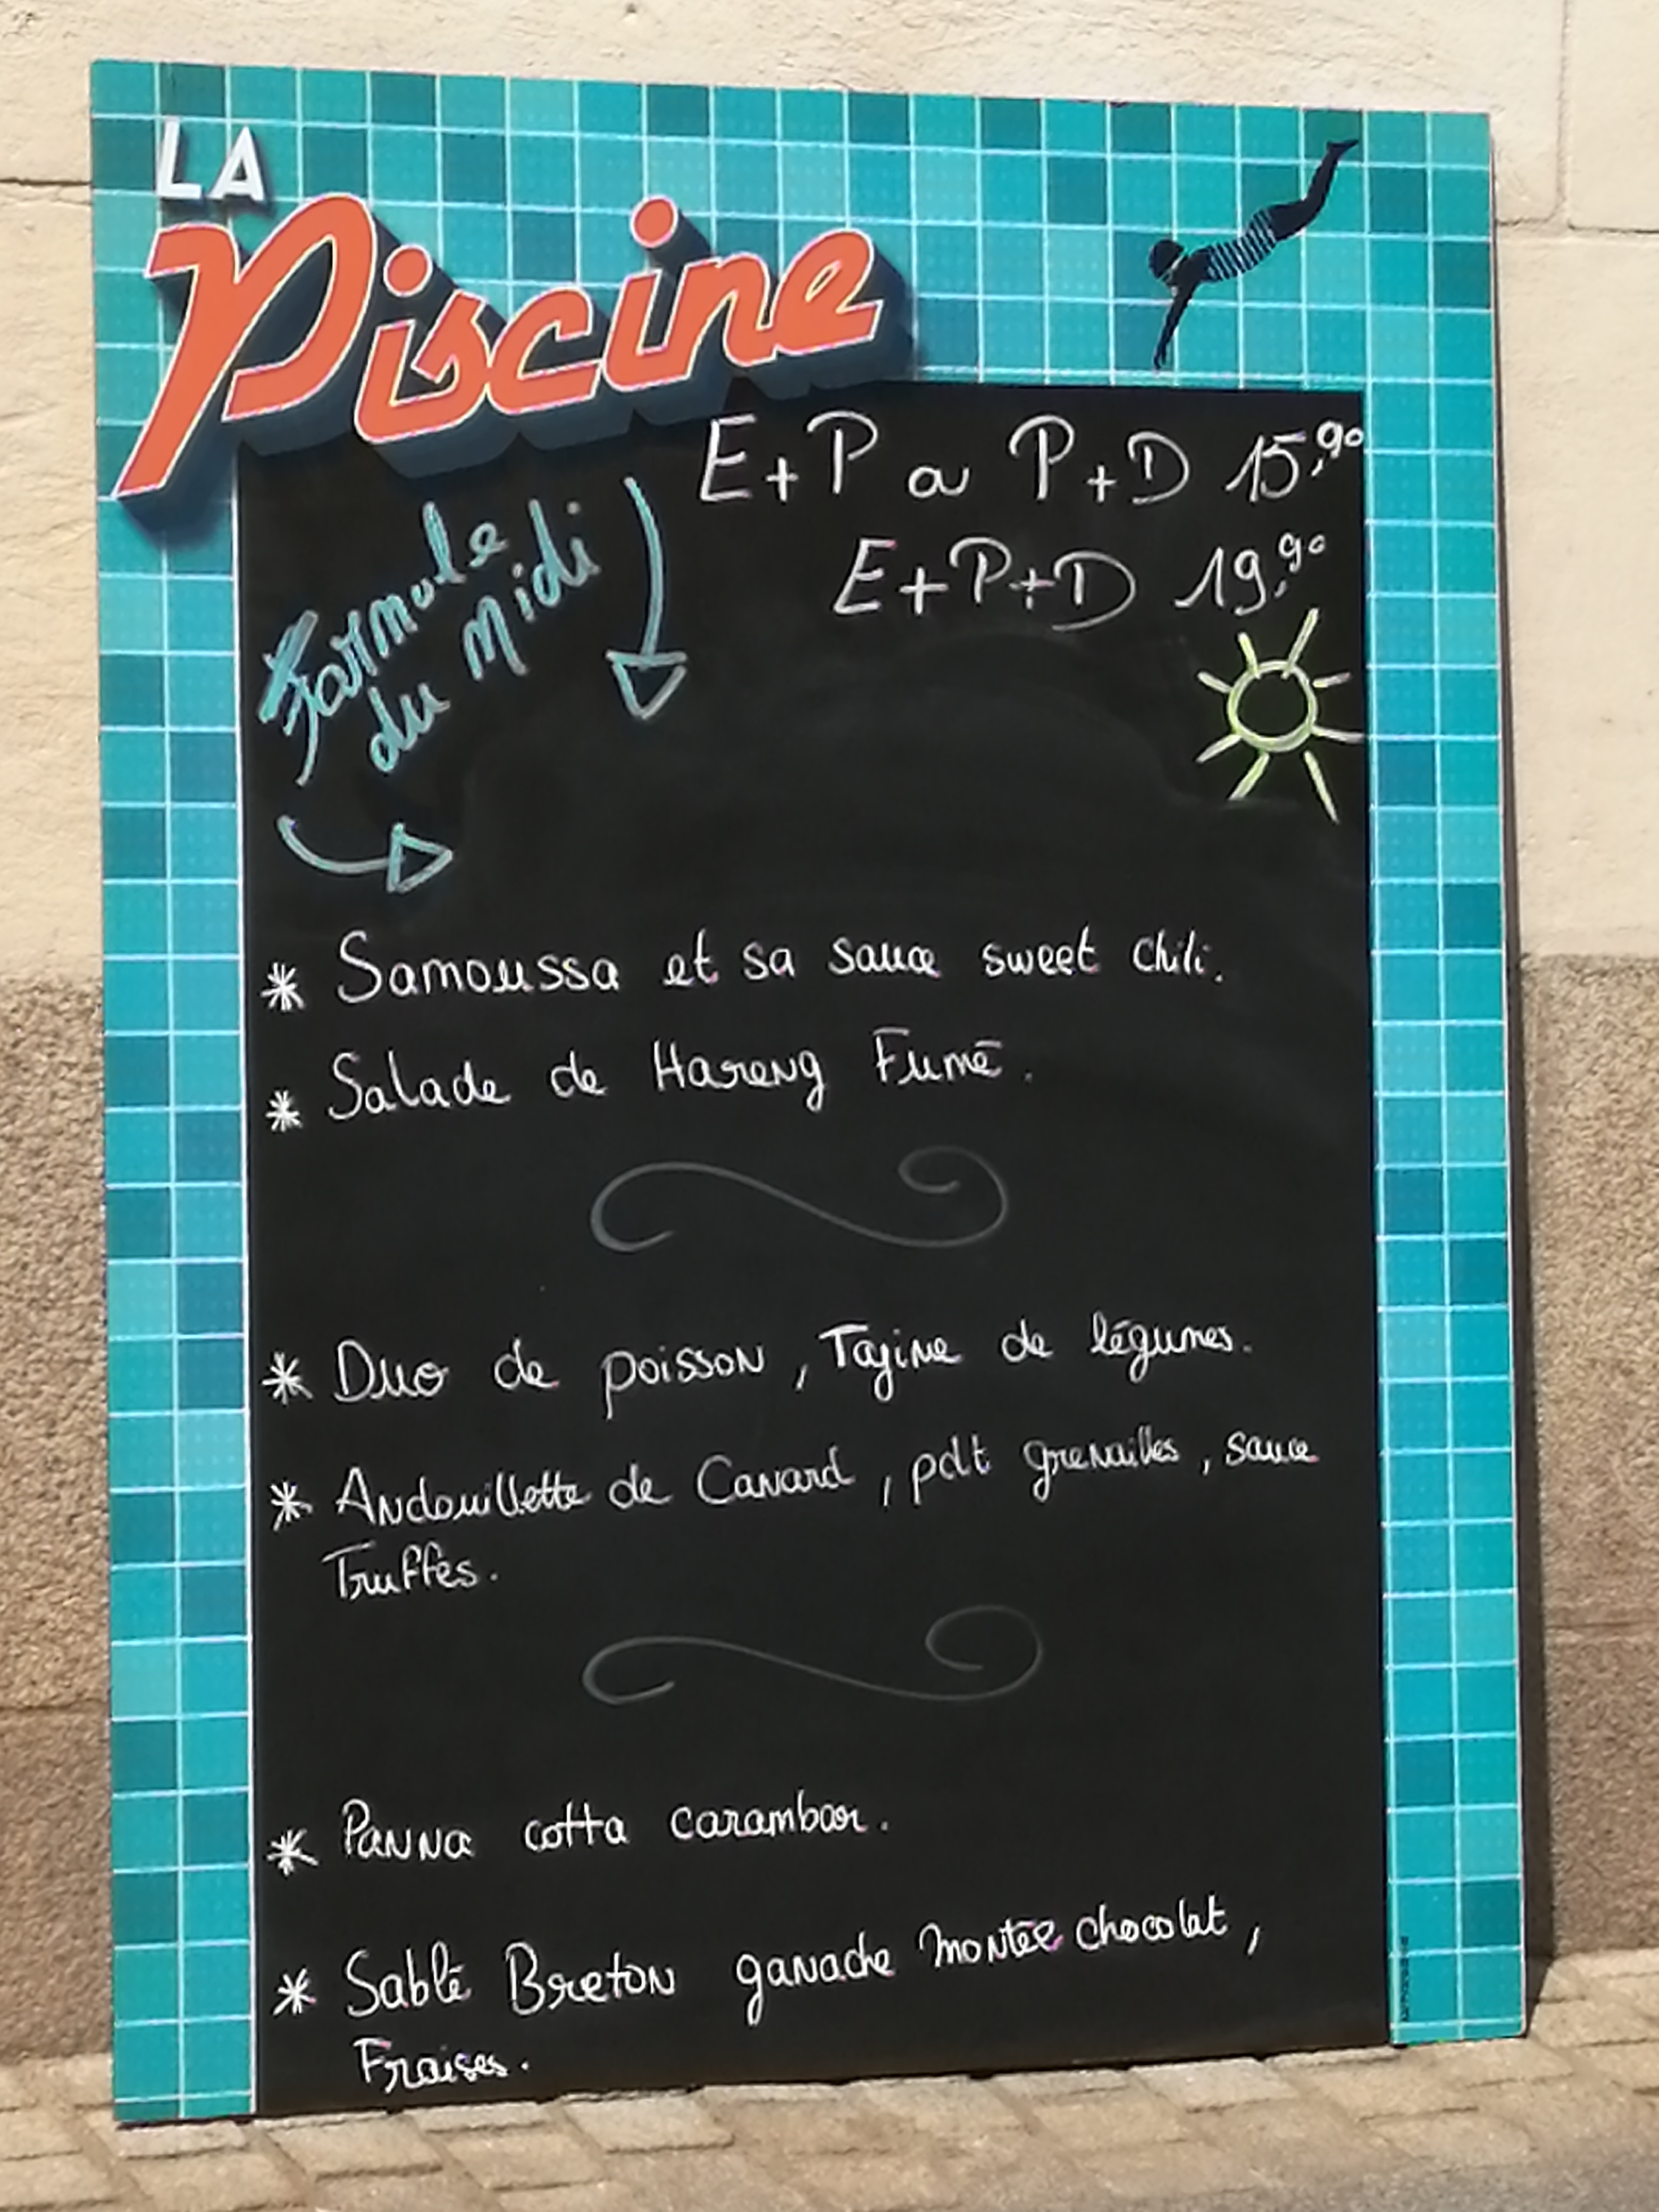 LA
Piscine
E+P ou P+D 15,90
E+P+D 19,90
Formule
du Midi
* Samoussa et sa sauce sweet chili.
* Salade de Hareng Fumé.
* Duo de poisson, Tajine de légumes.
* Andouillette de Canard, pdt grenailles, sauce
Truffes.
* Panna cotta carambar.
* Sablé Breton ganache montée chocolat,
Fraises.